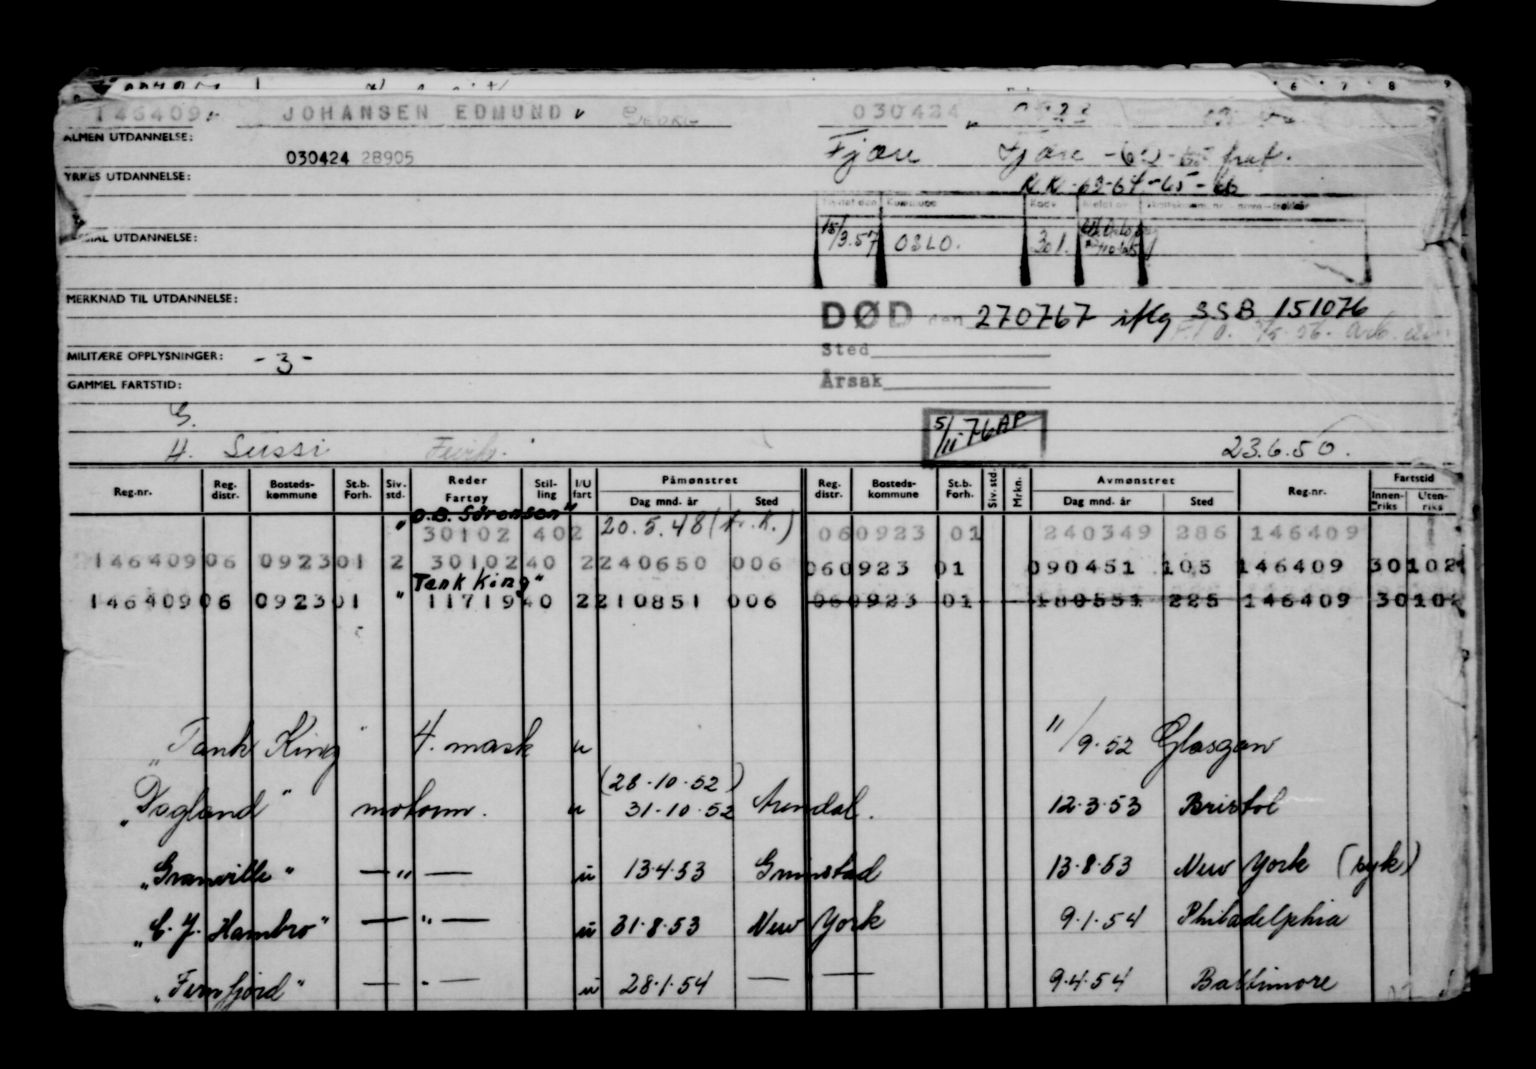 146409 JOHANSEN EDMUND 030424
ALMEN UTDANNELSE:
030424 28905 Fjære Fjære -62-65 frat.
YRKES UTDANNELSE:
KK-63-64-65-66
Kommune
UTDANNELSE: 15/3.57 OSLO. 301.
MERKNAD TIL UTDANNELSE:
DØD den 270767 iflg SSB 151076
Sted
MILITÆRE OPPLYSNINGER: -3-
GAMMEL FARTSTID: Årsak
G.
5/11-76 AP
H. Sussi 23.6.50.
Reg.nr. Reg. distr. Bosteds-kommune St.b. Forh. Siv. std. Reder Fartøy Stil-ling I/U fart Påmønstret Dag mnd. år Sted Reg. distr. Bosteds-kommune St.b. Forh. Siv. std. Mrkn. Avmønstret Dag mnd. år Sted Reg.nr. Fartstid Innen-riks Uten-riks
"O.B. Sørensen"
30102 402 20.5.48 (Kr.K.) 060923 01 240349 286 146409
146409 06 0923 01 2 30102 40 2 240650 006 060923 01 090451 105 146409 30102
"Tank King"
146409 06 0923 01 11719 40 2 210851 006 060923 01 180551 225 146409 30102
"Tank King" 4. mask u 11/9.52 Glasgow
(28.10.52)
"Dagland" motorm. u 31-10-52 Arendal. 12.3.53 Bristol
"Granville" — " — u 13.4.53 Grimstad 13.8.53 New York (syk)
"C. J. Hambro" — " — u 31.8.53 New York 9.1.54 Philadelphia
"Fernfjord" — " — u 28.1.54 — — 9.4.54 Baltimore